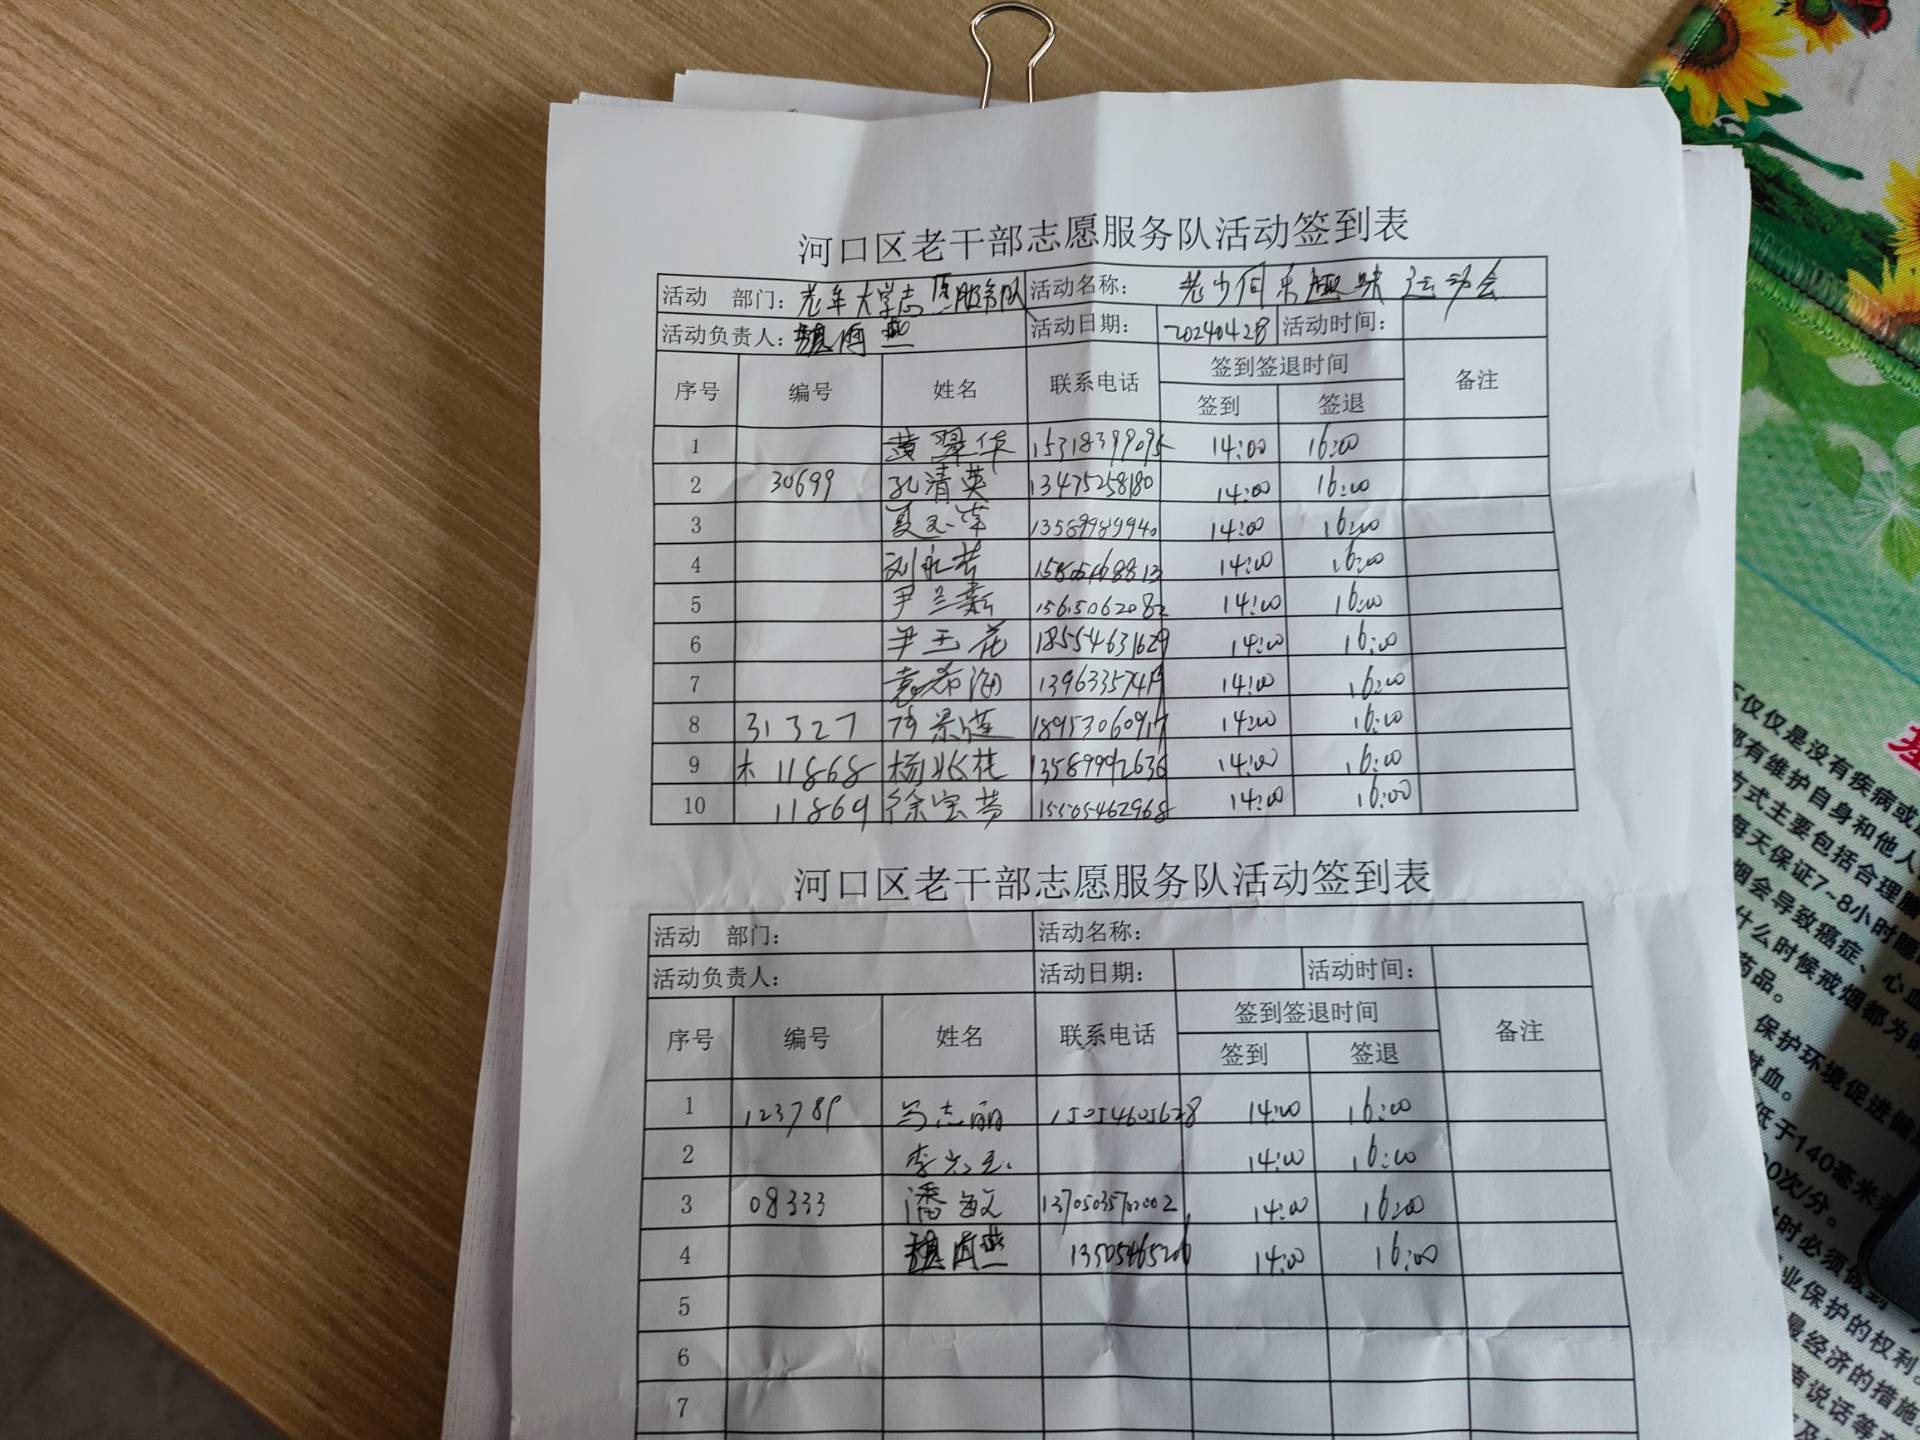 河口区老干部志愿服务队活动签到表
活动 部门：老年大学志愿服务队 活动名称：老少同乐趣味运动会
活动负责人：魏雨燕 活动日期：20240428 活动时间：
序号 编号 姓名 联系电话 签到签退时间 备注
签到 签退
1 黄翠华 15318399095 14:00 16:00
2 30699 孔清英 13475258180 14:00 16:00
3 13589989940 14:00 16:00
4 14:00 16:00
5 尹兰 14:00 16:00
6 尹玉花 18554631629 14:00 16:00
7 袁希海 14:00 16:00
8 31327 景莲 14:00 16:00
9 11868 杨 桂 13589992636 14:00 16:00
10 11869 徐宝芬 15505462968 14:00 16:00
河口区老干部志愿服务队活动签到表
活动 部门： 活动名称：
活动负责人： 活动日期： 活动时间：
序号 编号 姓名 联系电话 签到签退时间 备注
签到 签退
1 123789 马志丽 15054605628 14:00 16:00
2 李 玉 14:00 16:00
3 08333 潘敏 14:00 16:00
4 魏雨燕 14:00 16:00
5
6
7
不仅仅是没有疾病或
都有维护自身和他人
方式主要包括合理膳
每天保证7~8小时睡
烟会导致癌症、心血
什么时候戒烟都为时
药品。
保护环境促进健
献血。
低于140毫米
次/分。
时必须
业保护的权利
最经济的措施
声说话等